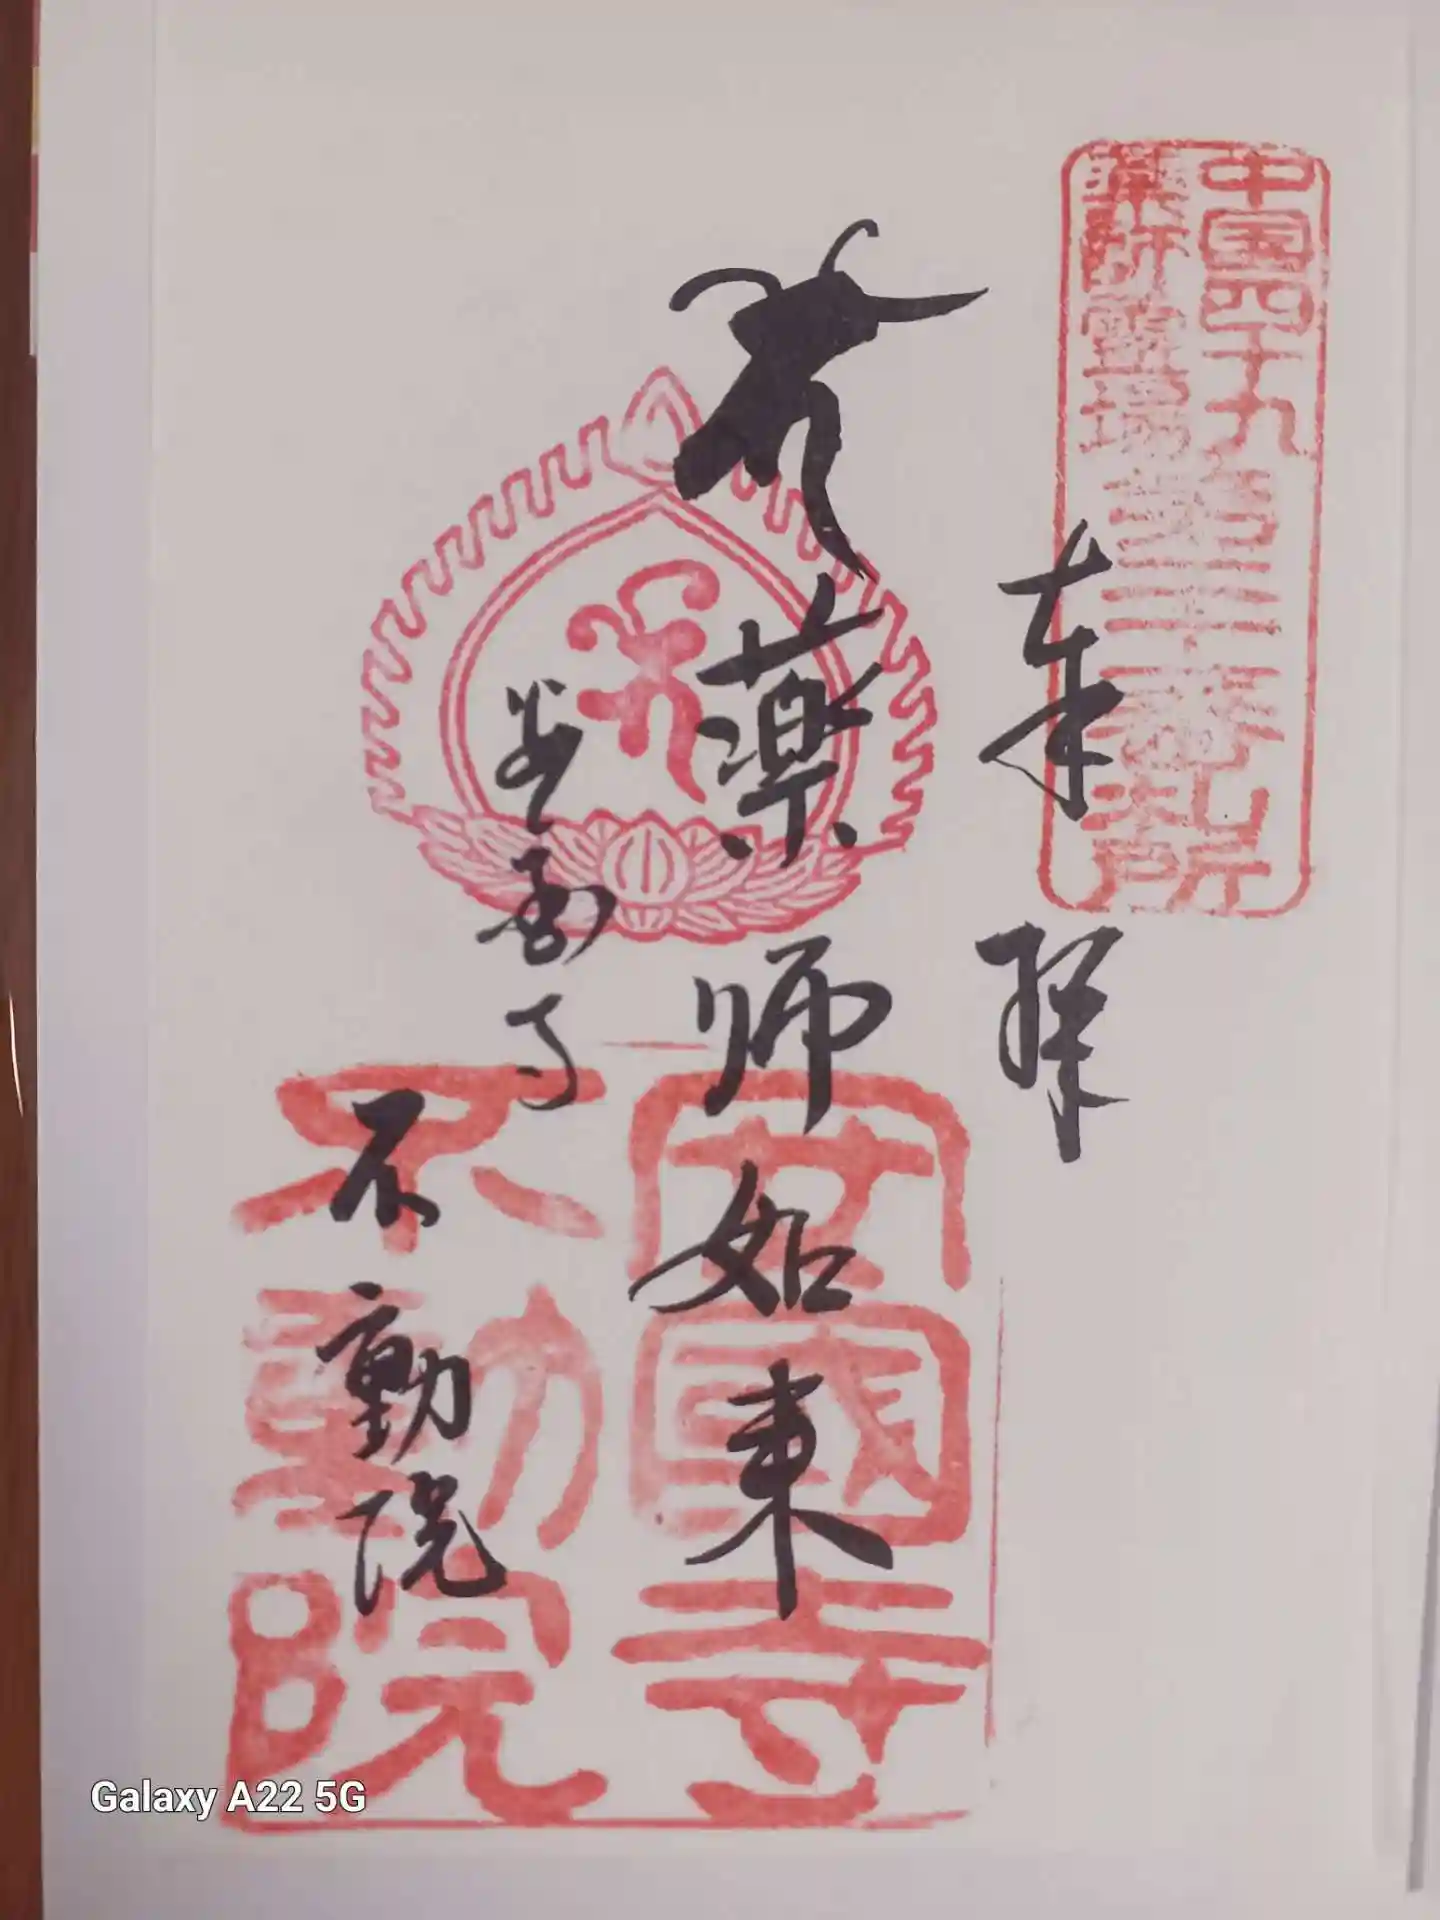 中国四十九
薬師霊場
第三十番札所
奉拝
薬師如来
安国寺
不動院
安國寺
不動院
Galaxy A22 5G